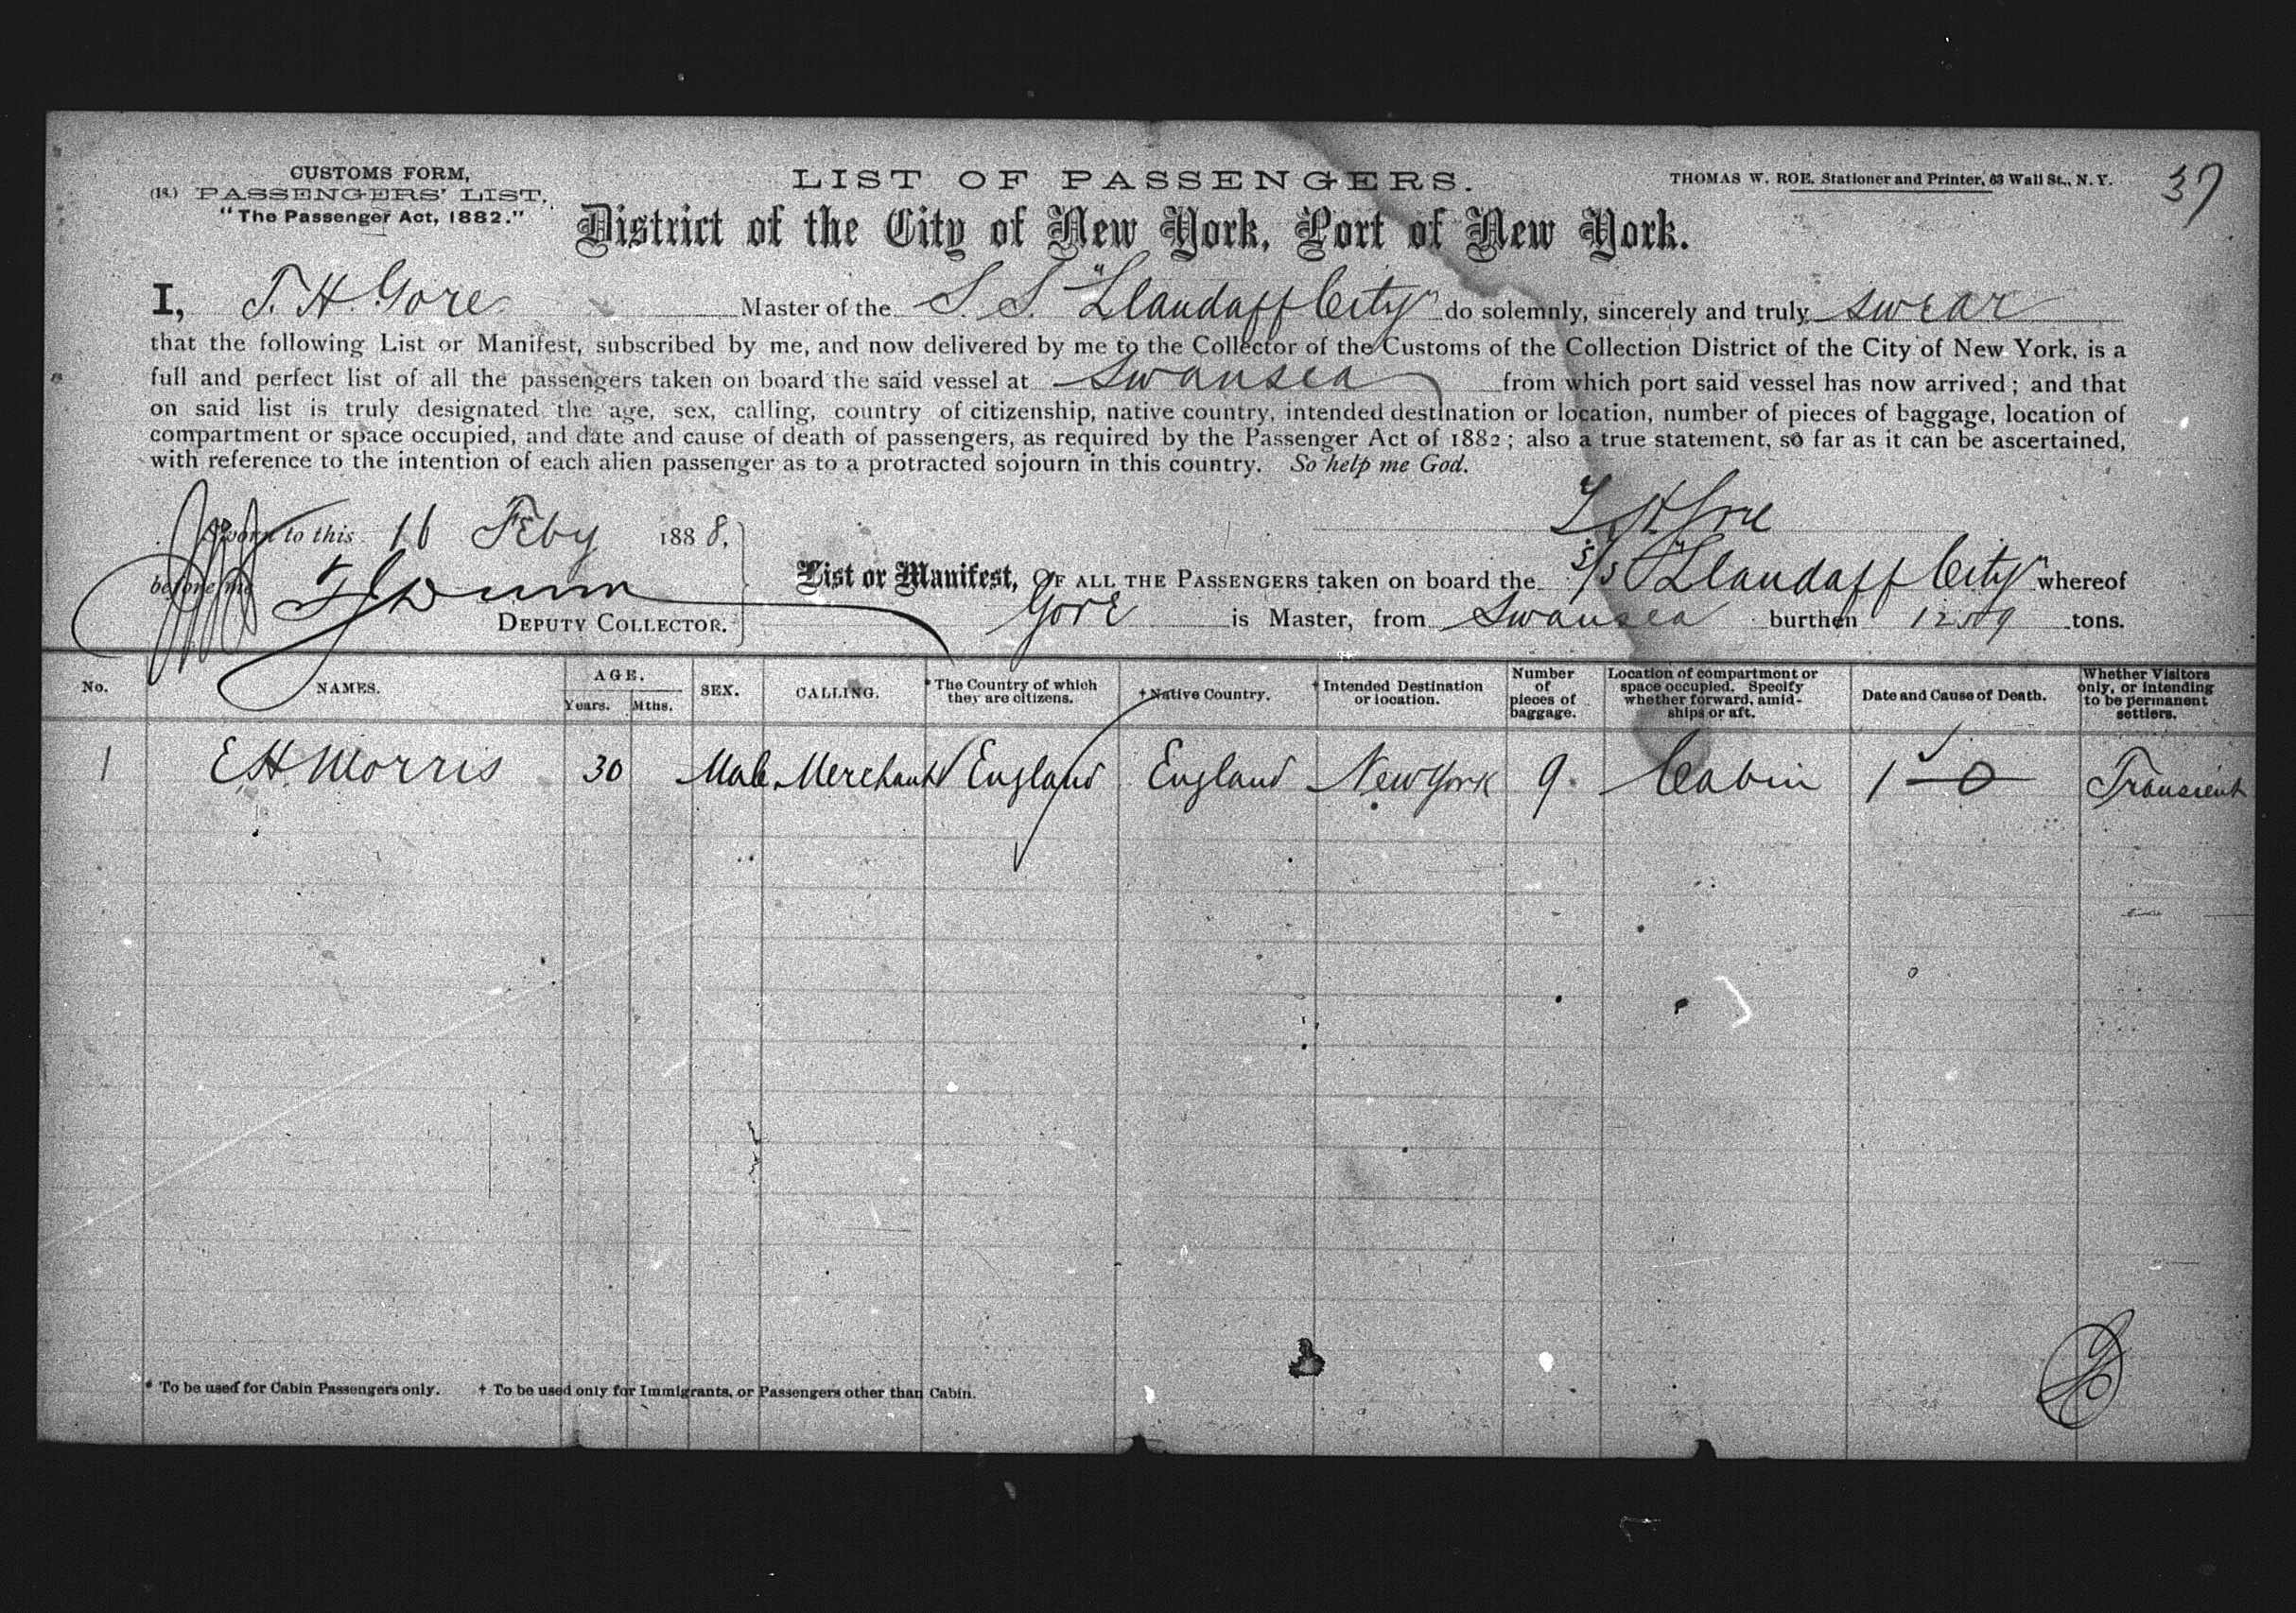 CUSTOMS FORM,
(18.) PASSENGERS' LIST,
"The Passenger Act, 1882."
LIST OF PASSENGERS.
THOMAS W. ROE, Stationer and Printer, 63 Wall St., N.Y.
37
District of the City of New York, Port of New York.
I, T. H. Gore Master of the S. S. "Llandaff City" do solemnly, sincerely and truly swear
that the following List or Manifest, subscribed by me, and now delivered by me to the Collector of the Customs of the Collection District of the City of New York, is a
full and perfect list of all the passengers taken on board the said vessel at Swansea from which port said vessel has now arrived; and that
on said list is truly designated the age, sex, calling, country of citizenship, native country, intended destination or location, number of pieces of baggage, location of
compartment or space occupied, and date and cause of death of passengers, as required by the Passenger Act of 1882; also a true statement, so far as it can be ascertained,
with reference to the intention of each alien passenger as to a protracted sojourn in this country. So help me God.
T. H. Gore
Sworn to this 16 Feby 1888,
before me
DEPUTY COLLECTOR.
List or Manifest, OF ALL THE PASSENGERS taken on board the S/S "Llandaff City" whereof
Gore is Master, from Swansea burthen tons.
No. NAMES. AGE. Years. Mths. SEX. CALLING. * The Country of which they are citizens. † Native Country. † Intended Destination or location. Number of pieces of baggage. Location of compartment or space occupied. Specify whether forward, amidships or aft. Date and Cause of Death. Whether Visitors only, or intending to be permanent settlers.
1 E H Morris 30 Male Merchant England England New York 9 Cabin 1 — 0 Transient
* To be used for Cabin Passengers only. † To be used only for Immigrants, or Passengers other than Cabin.